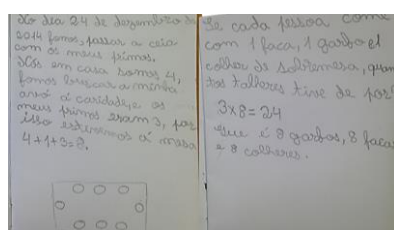 No dia 24 de dezembro de
2014 fomos, passar a ceia
com os meus primos.
Nós em casa somos 4,
fomos buscar a minha
avó á caridade e os
meus primos eram 3, por
isso estivemos á mesa
4+1+3=8.
Se cada pessoa come
com 1 faca, 1 garfo e 1
colher de sobremesa, quan
tos talheres tive de por?
3x8=24
Que é 8 garfos, 8 facas
e 8 colheres.